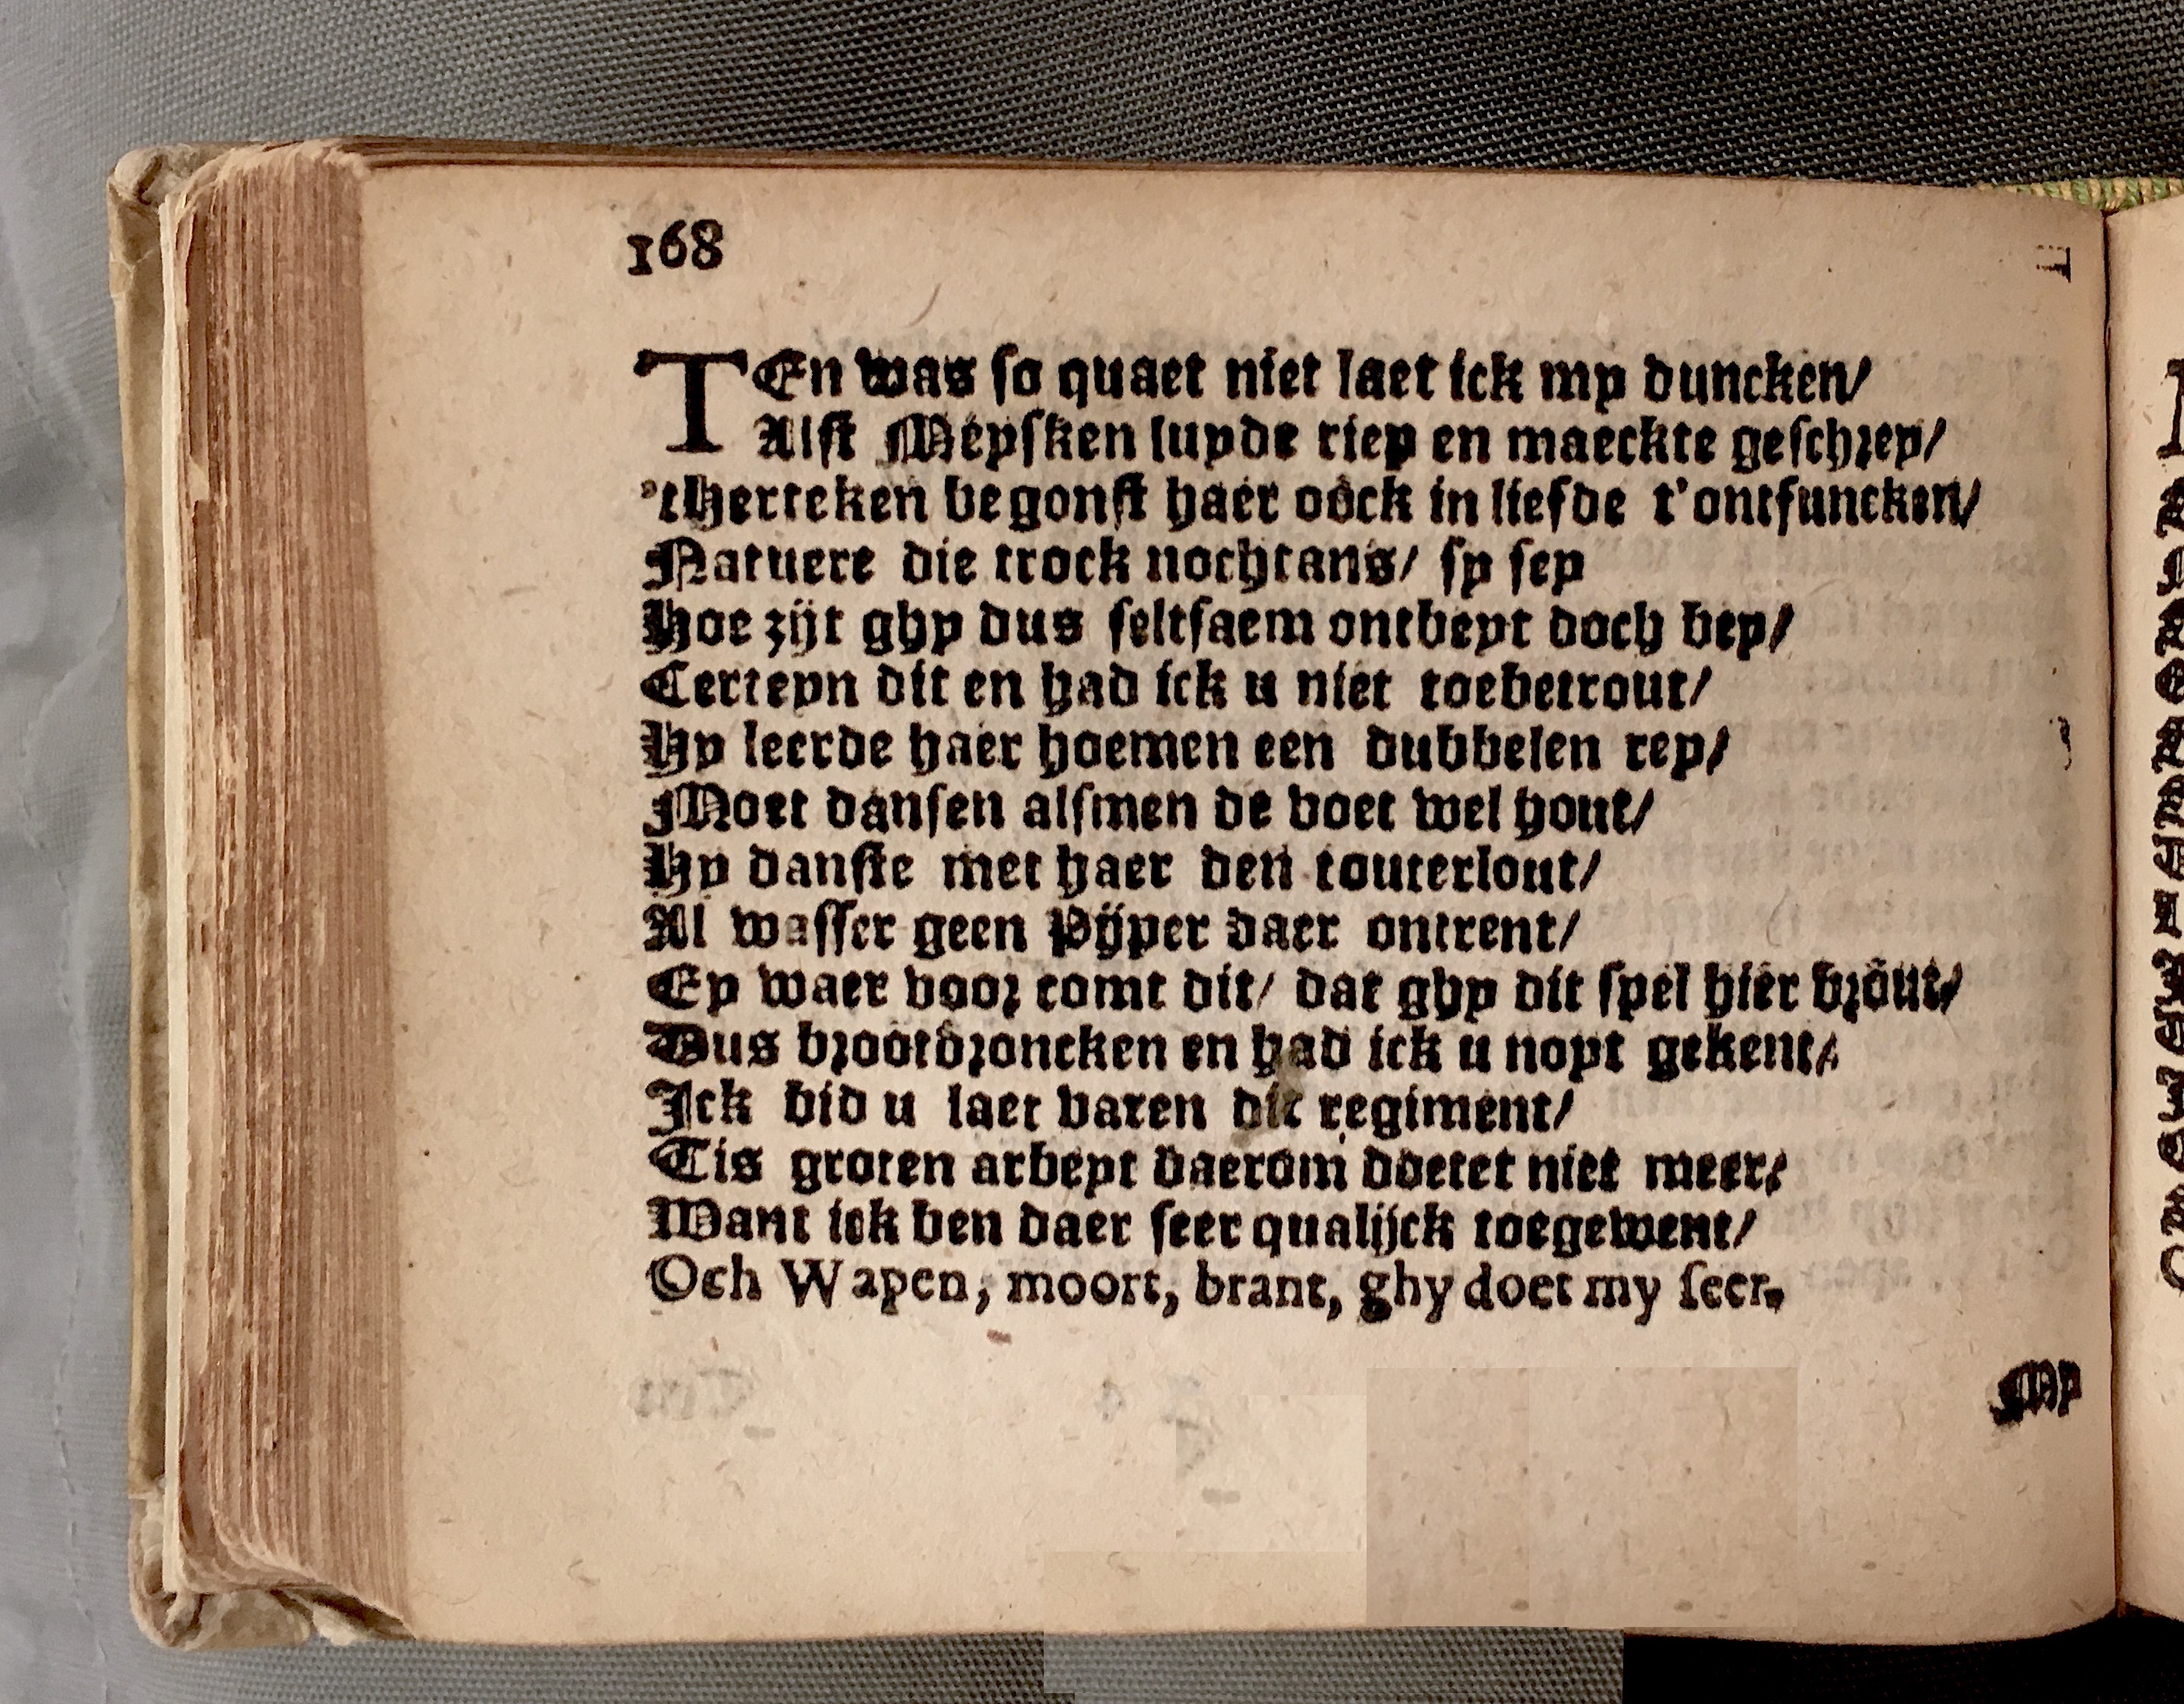 168
TEn was so quaet niet laet ick my duncken/
Alst Meysken luyde riep en maeckte geschrey/
'tHerteken begonst haer oock in liefde t'ontfuncken/
Natuere die trock nochtans/ sy sey
Hoe zijt ghy dus seltsaem ontbeyt doch bey/
Certeyn dit en had ick u niet toebetrout/
Hy leerde haer hoemen een dubbelen rey/
Moet dansen alsmen de voet wel hout/
Hy danste met haer den touterlout/
Al wasser geen Pijper daer ontrent/
Ey waer voor comt dit/ dat ghy dit spel hier brout/
Dus brootdroncken en had ick u noyt gekent/
Ick bid u laet varen dit regiment/
Tis groten arbeyt daerom doetet niet meer/
Want ick ben daer seer qualijck toegewent/
Och Wapen, moort, brant, ghy doet my seer.
My